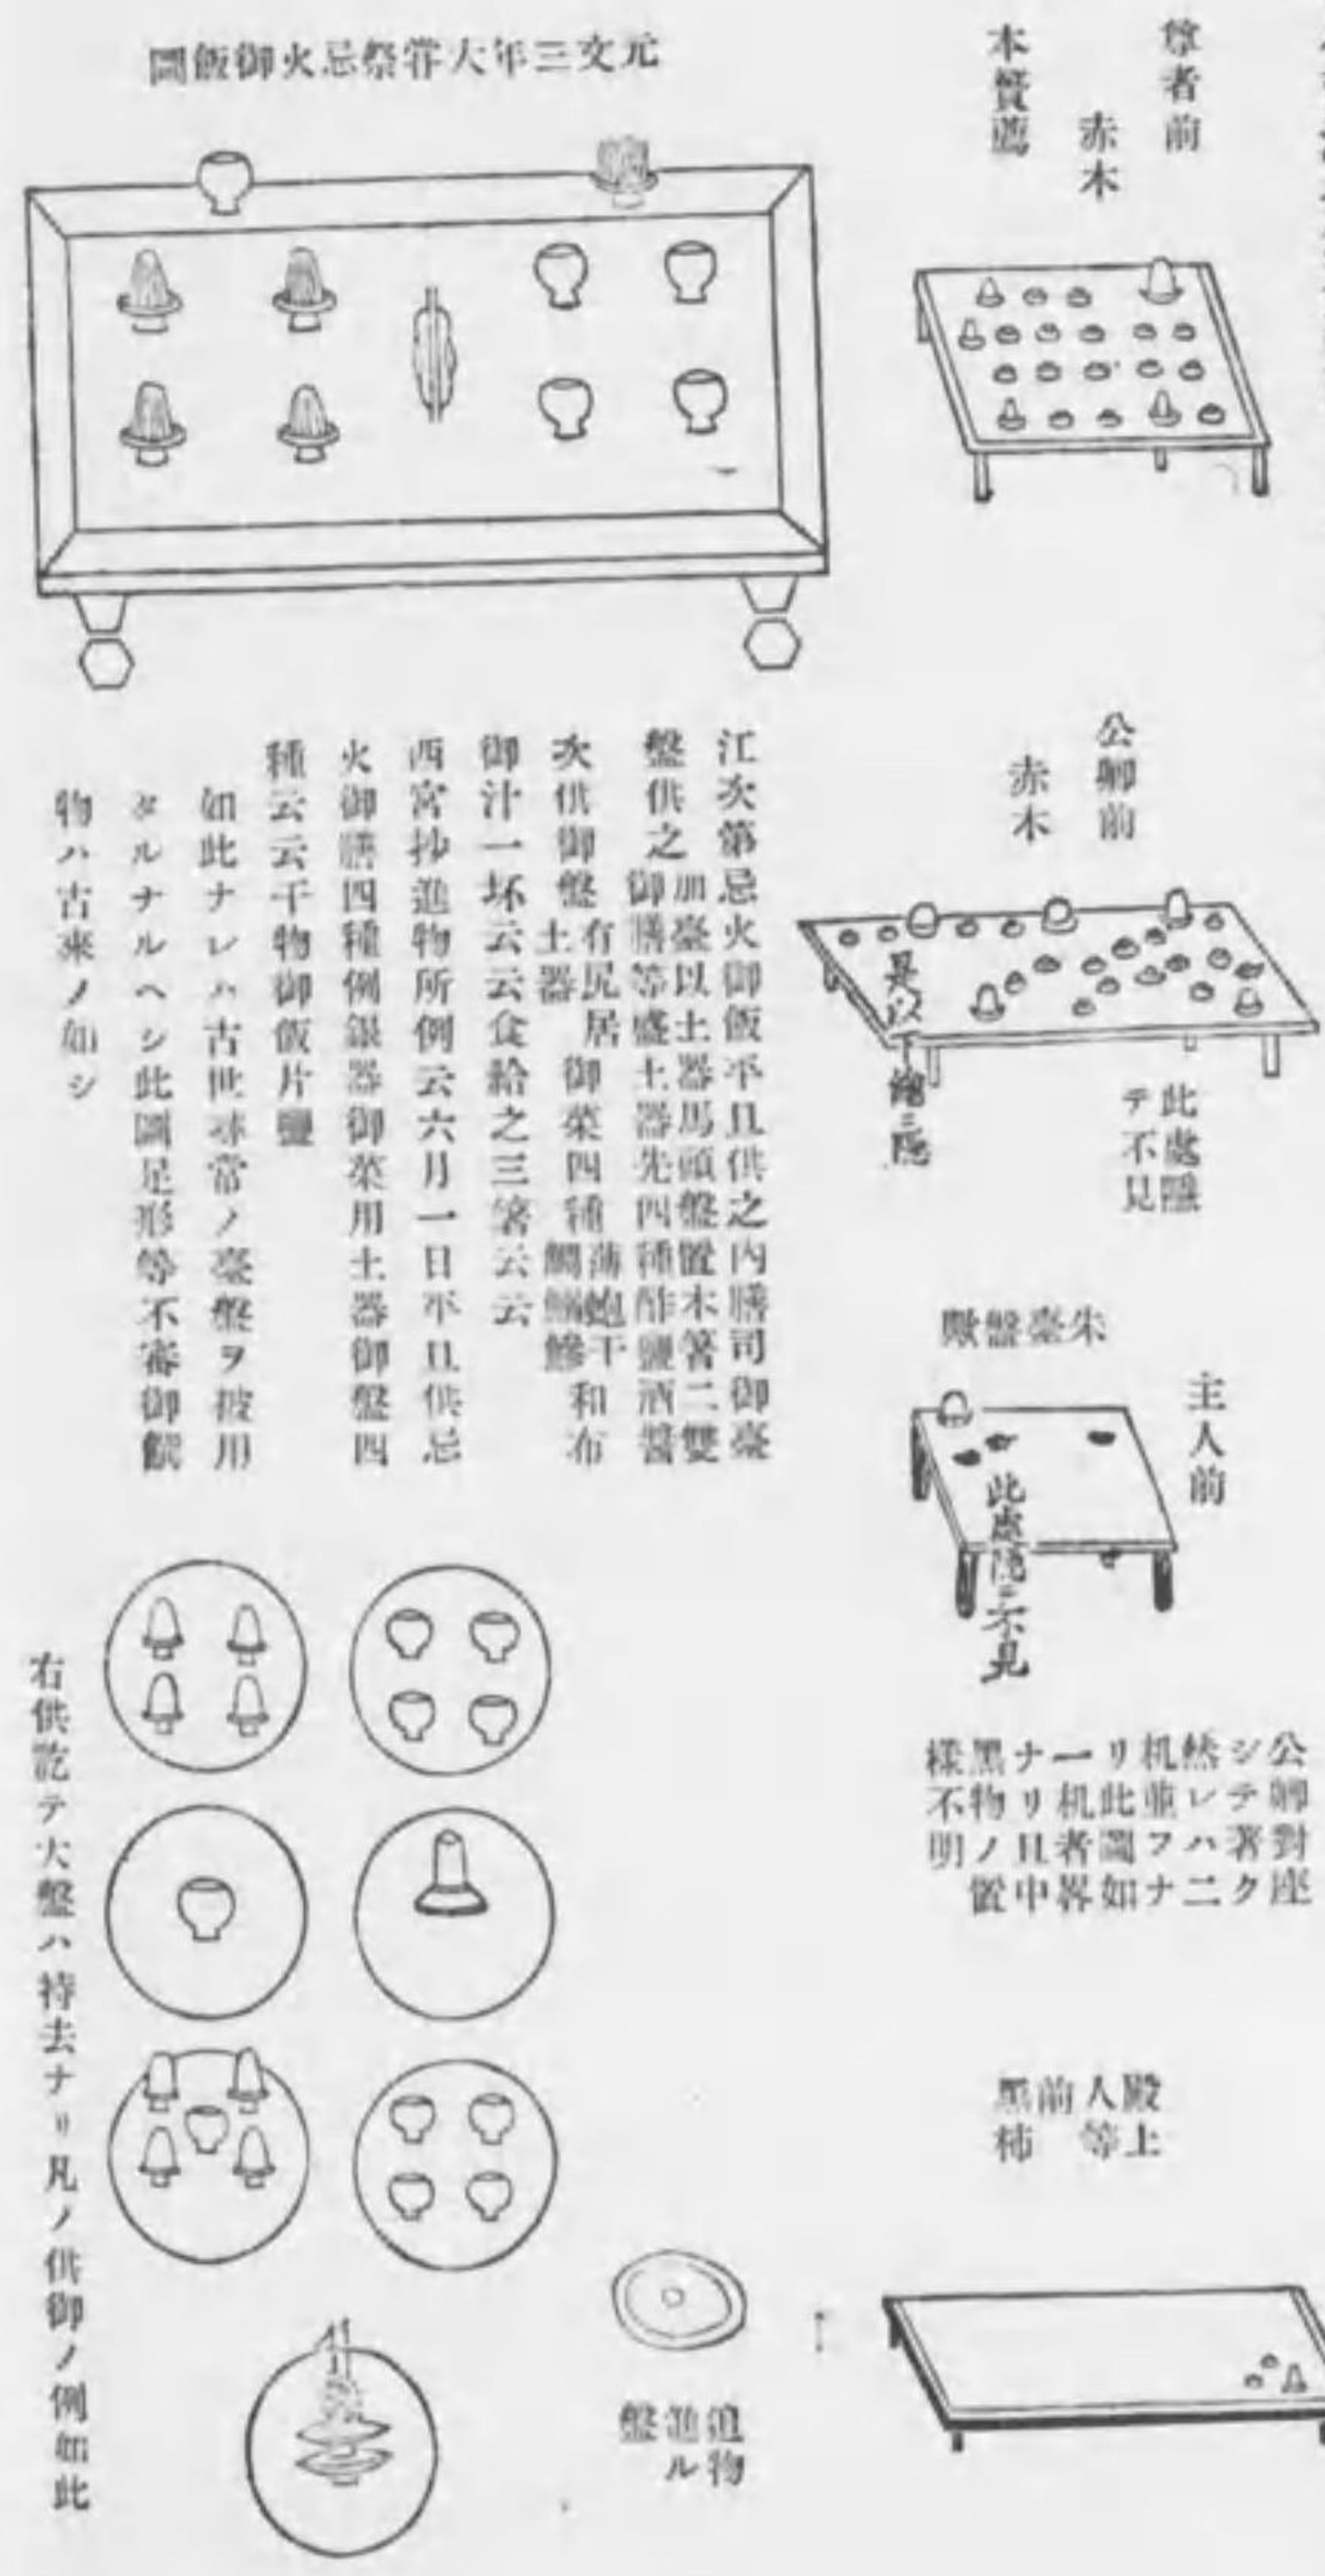 尊者前
赤木
本賢薦
公卿前
赤木
是以下繪ニ隠
此處隱
テ不見
朱臺盤歟
主人前
此處隠ニ不見
公卿對座
シテ著ク
然レハ二
机並フナ
リ此圖如
一机者畧
ナリ且中
黑物ノ置
樣不明
殿上
人等
前
黑柿
元文三年大甞祭忌火御飯圖
江次第忌火御飯平旦供之內膳司御臺
盤供之加臺以土器馬頭盤置木箸二雙
御膳等盛土器先四種酢鹽酒醬
次供御盤有尻居土器御菜四種薄鮑干鯛鰯鰺和布
御汁一坏云云食給之三箸云云
西宮抄進物所例云六月一日平旦供忌
火御膳四種例銀器御菜用土器御盤四
種云云干物御飯片鹽
如此ナレハ古世尋常ノ臺盤ヲ被用
タルナルヘシ此圖足形等不審御饌
物ハ古來ノ如シ
追物
進ル
盤
右供訖テ大盤ハ持去ナリ凡ノ供御ノ例如此